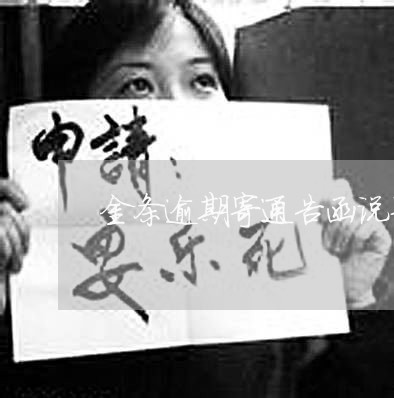 申請：
金条逾期寄通告函说
安乐死